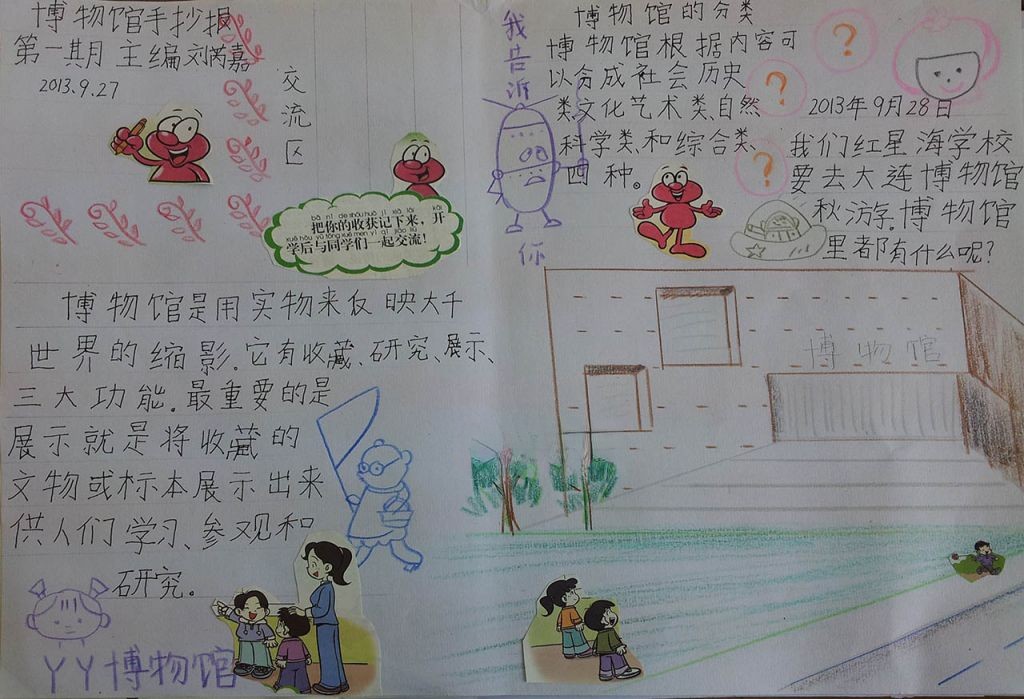 博物馆手抄报
第一期 主编刘芮嘉
2013.9.27
交流区
bǎ nǐ de shōu huò jì xià lái kāi
把你的收获记下来，开
xué hòu yǔ tóng xué men yì qǐ jiāo liú
学后与同学们一起交流！
博物馆是用实物来反映大千
世界的缩影.它有收藏、研究、展示、
三大功能.最重要的是
展示就是将收藏的
文物或标本展示出来
供人们学习、参观和
研究。
丫丫博物馆
我告诉
你
博物馆的分类
博物馆根据内容可
以分成社会历史
类、文化艺术类、自然
科学类、和综合类、
四种。
?
?
?
2013年9月28日
我们红星海学校
要去大连博物馆
秋游.博物馆
里都有什么呢?
博物馆